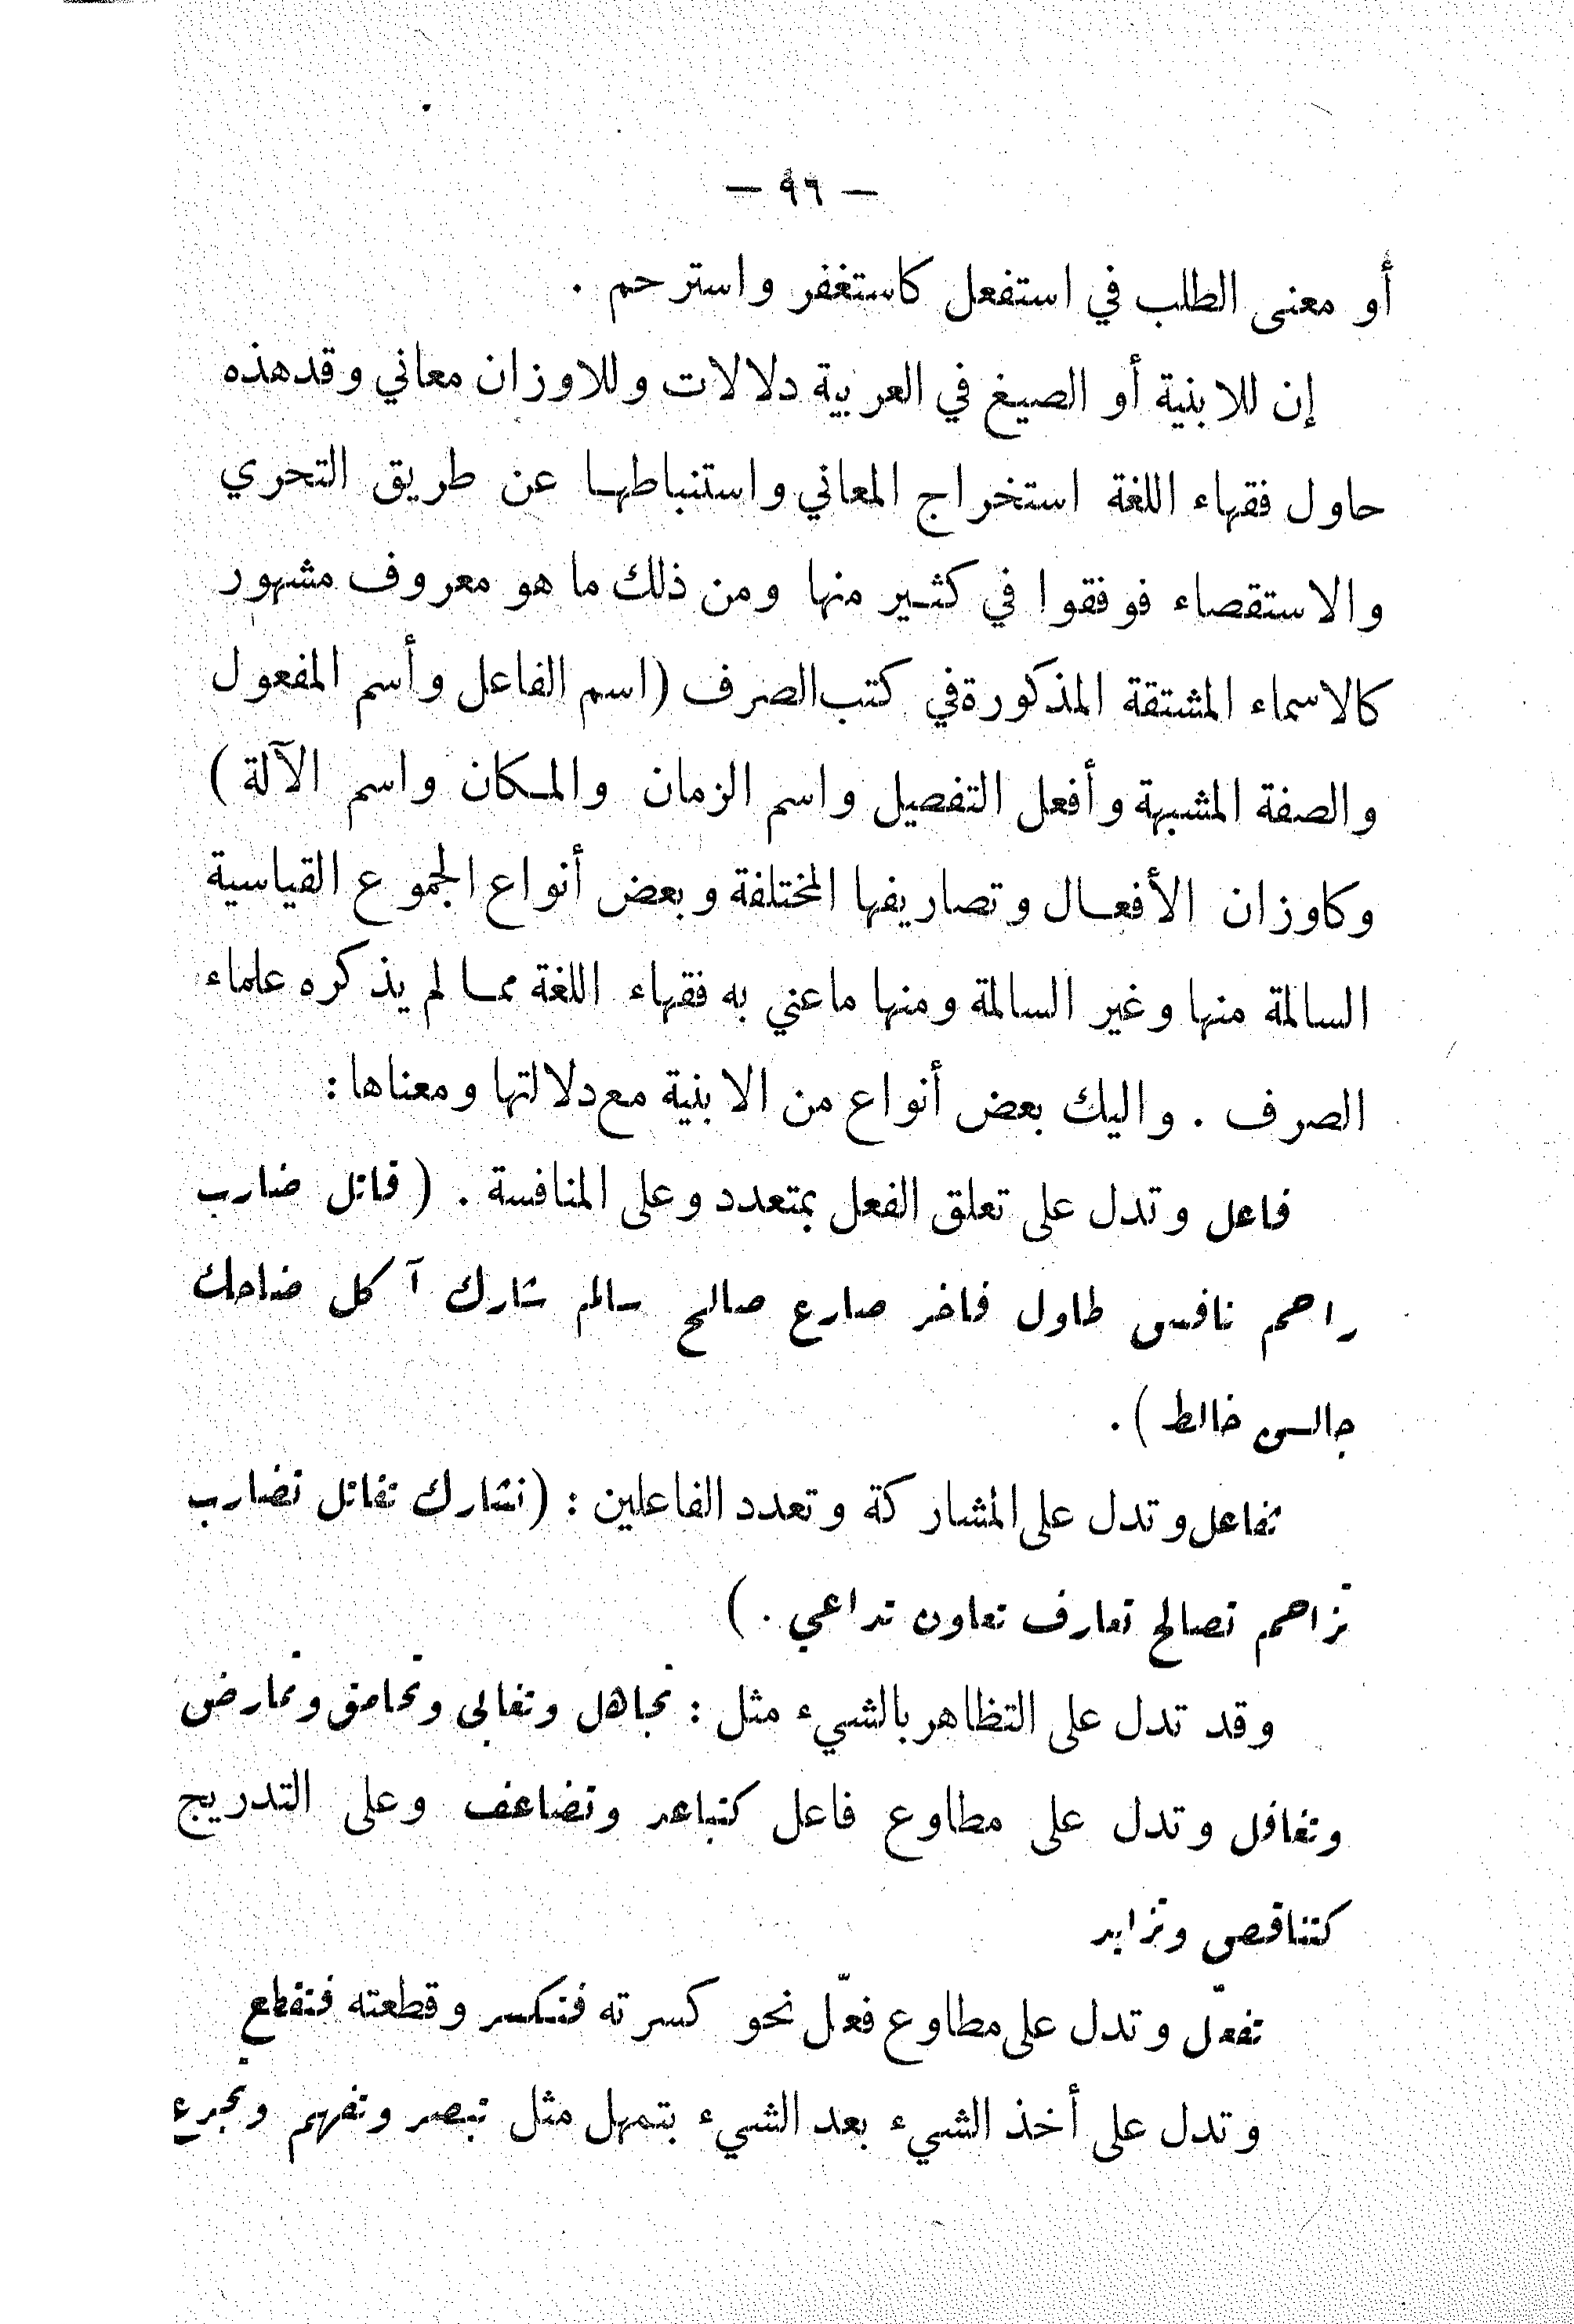 — ٩٦ —
أو معنى الطلب في استفعل كاستغفر واسترحم .
إن للابنية أو الصيغ في العربية دلالات وللاوزان معاني وقدهذه
حاول فقهاء اللغة استخراج المعاني واستنباطها عن طريق التحري
والاستقصاء فوفقوا في كثير منها ومن ذلك ما هو معروف مشهور
كالاسماء المشتقة المذكورة في كتب الصرف (اسم الفاعل وأسم المفعول
والصفة المشبهة وأفعل التفصيل واسم الزمان والمكان واسم الآلة )
وكاوزان الأفعال وتصاريفها المختلفة وبعض أنواع الجموع القياسية
السالمة منها وغير السالمة ومنها ماعني به فقهاء اللغة مما لم يذكره علماء
الصرف . واليك بعض أنواع من الابنية مع دلالتها ومعناها :
فاعل وتدل على تعلق الفعل بمتعدد وعلى المنافسة . ( قاتل ضارب
راحم نافس طاول فاخر صارع صالح سالم شارك آكل ضاحك
جالس خالط ) .
تفاعل وتدل على المشاركة وتعدد الفاعلين : (تشارك تقاتل تضارب
تزاحم تصالح تعارف تعاون تداعي . )
وقد تدل على التظاهر بالشيء مثل : تجاهل وتغابى وتحامق وتمارض
وتغافل وتدل على مطاوع فاعل كتباعد وتضاعف وعلى التدريج
كتناقص وتزايد
تفعّل وتدل على مطاوع فعّل نحو كسرته فتكسر وقطعته فتقطع
وتدل على أخذ الشيء بعد الشيء بتمهل مثل تبصر وتفهم وتجرع